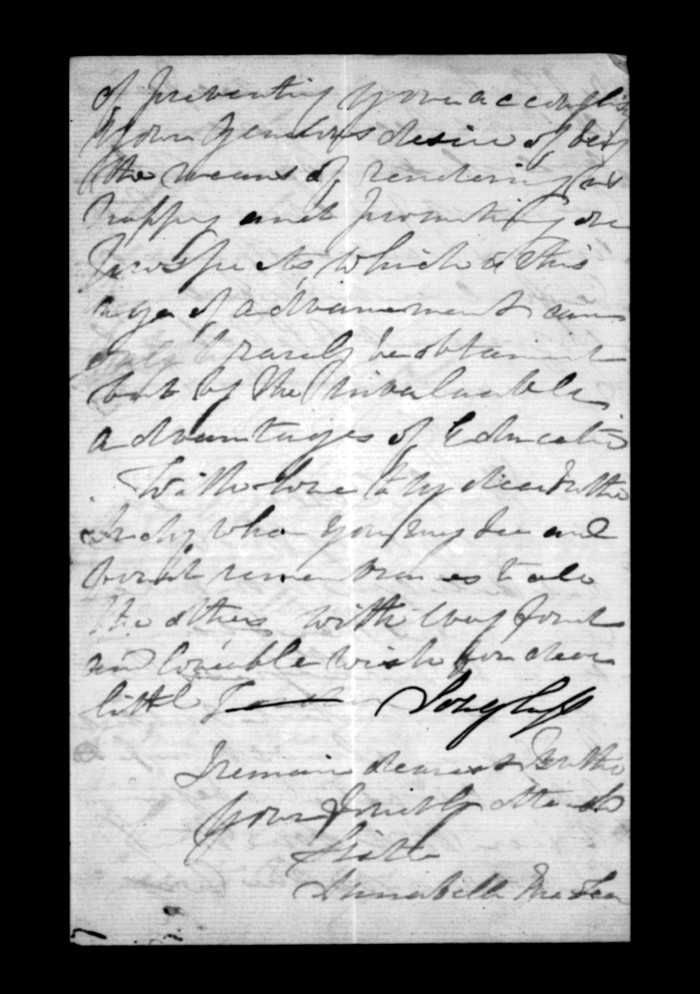 of preventing your accomplish
your generous desire of being
the means of rendering us
happy and promoting our
prospects, which in this
age of advancement can
only rarely be obtained
but by the invaluable
advantages of Education
With love to my dear Brother
whom you may see and
kind remembrances to all
the others with every fond
and loveable wish for dear
little
I remain dearest Brother
your fondly attached
Sister
Annabella McLean